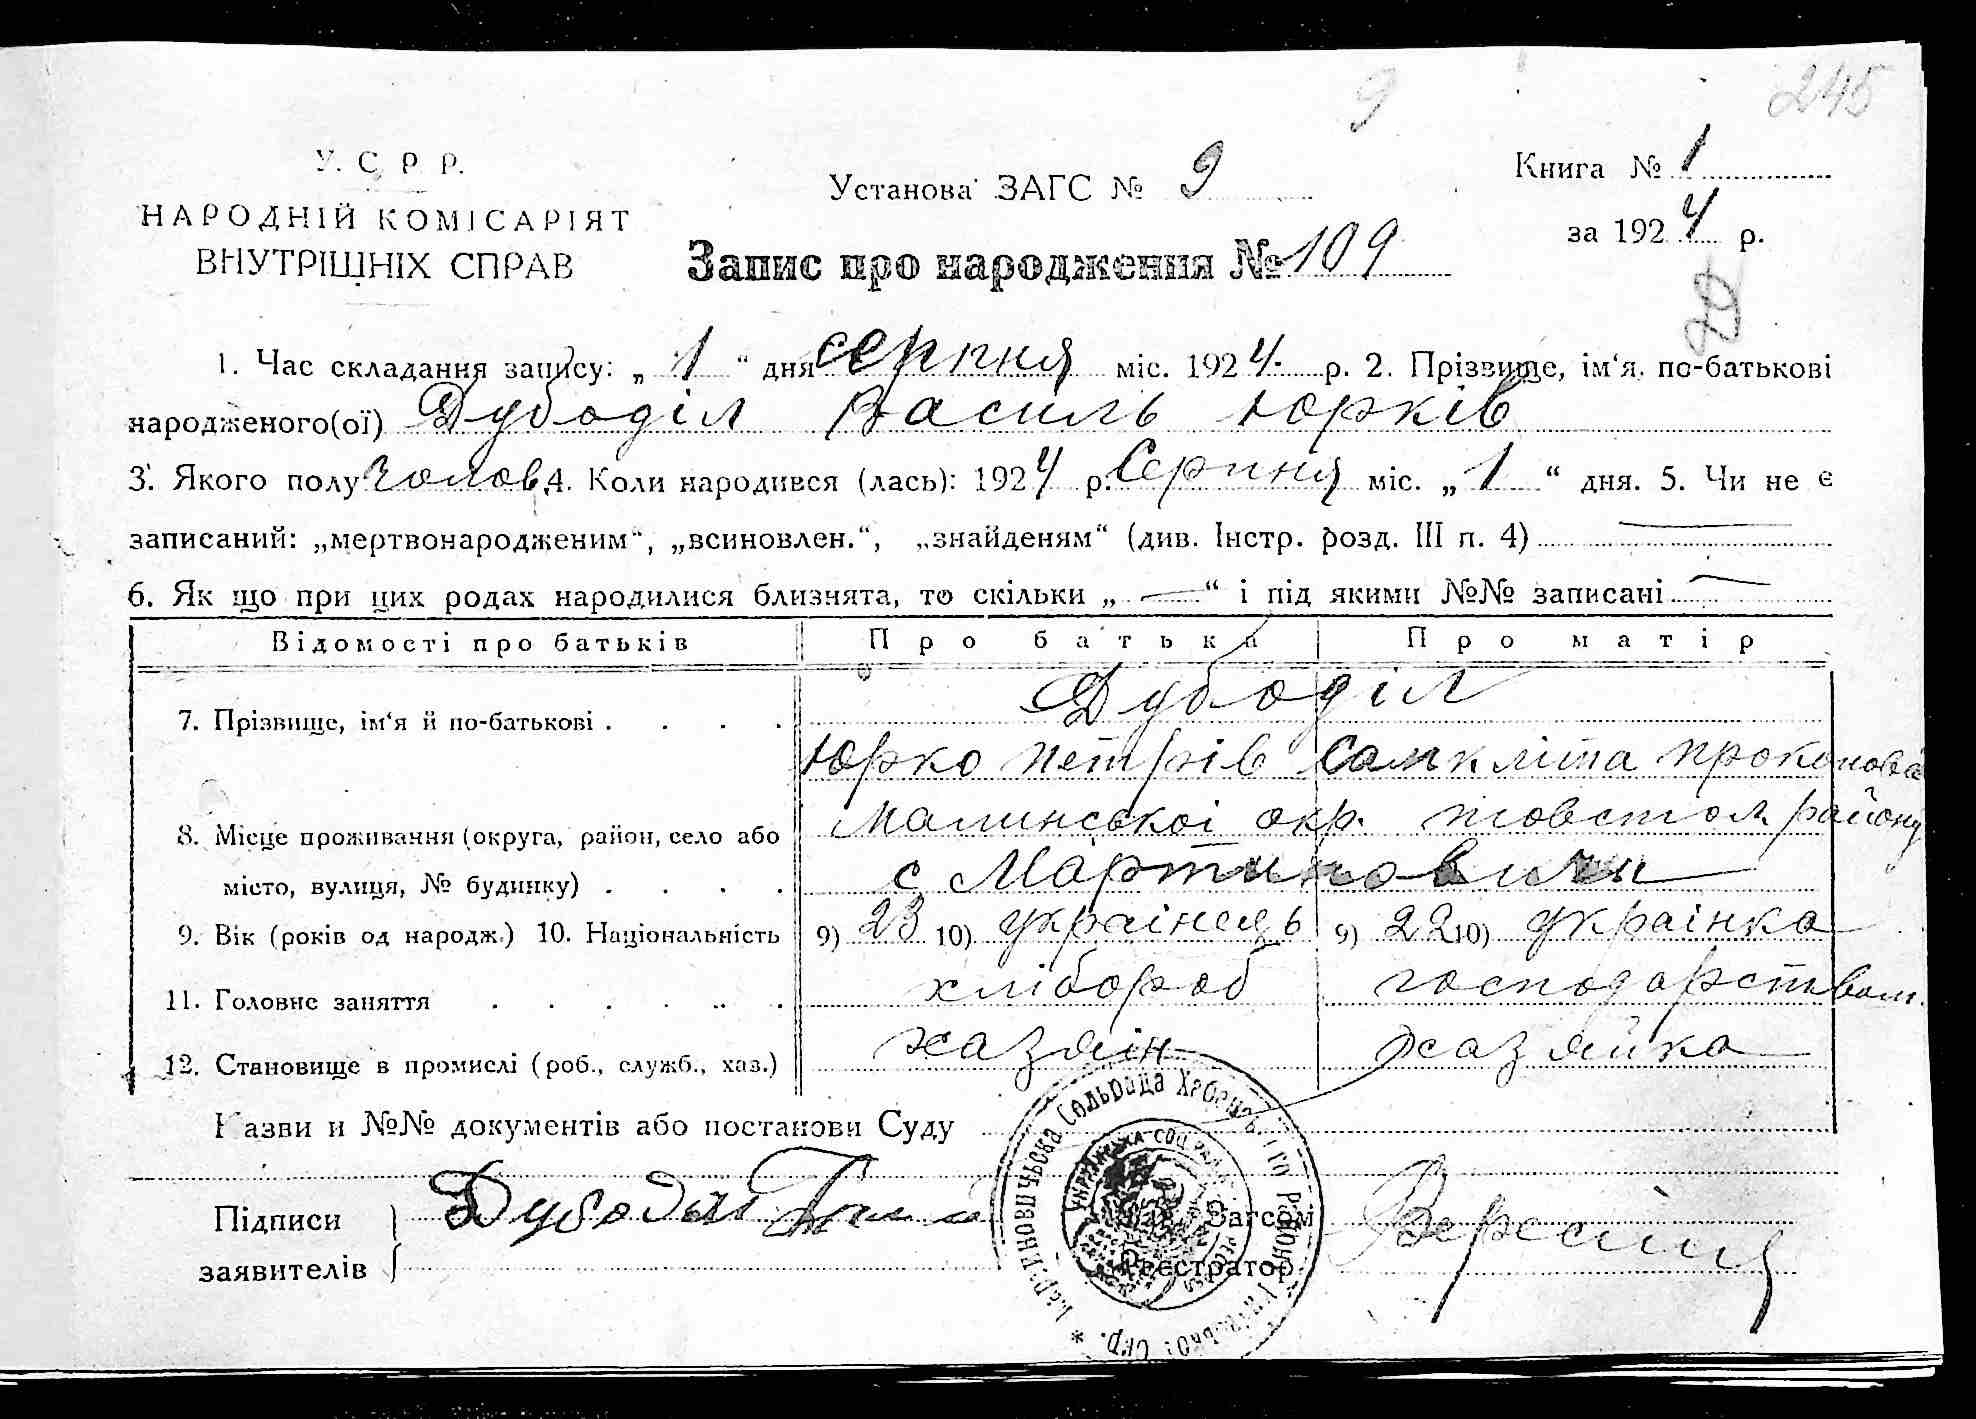 9
245
У. С. Р. Р.
НАРОДНІЙ КОМІСАРІЯТ
ВНУТРІШНІХ СПРАВ
Установа ЗАГС № 9
Запис про народження № 109
Книга № 1
за 1924 р.
1. Час складання запису: „ 1 “ дня серпня міс. 1924. р. 2. Прізвище, ім‘я, по-батькові
народженого(ої) Дубоділ Василь Юрків
3. Якого полу чолов. 4. Коли народився (лась): 1924 р. Серпня міс. „ 1 “ дня. 5. Чи не є
записаний: „мертвонародженим“, „всиновлен.“, „знайденям“ (див. Інстр. розд. III п. 4)
6. Як що при цих родах народилися близнята, то скільки „ — “ і під якими №№ записані —
Відомості про батьків Про батька Про матір
7. Прізвище, ім‘я й по-батькові . . . . Дубоділ
Юрко Петрів Самкліта Проконова
8. Місце проживання (округа, район, село або Малинської окр. район
місто, вулиця, № будинку) . . . . с Мартиновичи
9. Вік (років од народж.) 10. Національність 9) 23 10) українець 9) 22 10) українка
11. Головне заняття . . . . . . хлібороб господарством
12. Становище в промислі (роб., служб., хаз.) хазяїн хазяйка
Назви и №№ документів або постанови Суду
Підписи
заявителів
Дубоділ
Загсом
Реєстратор
Сельрада
Района
Окр.